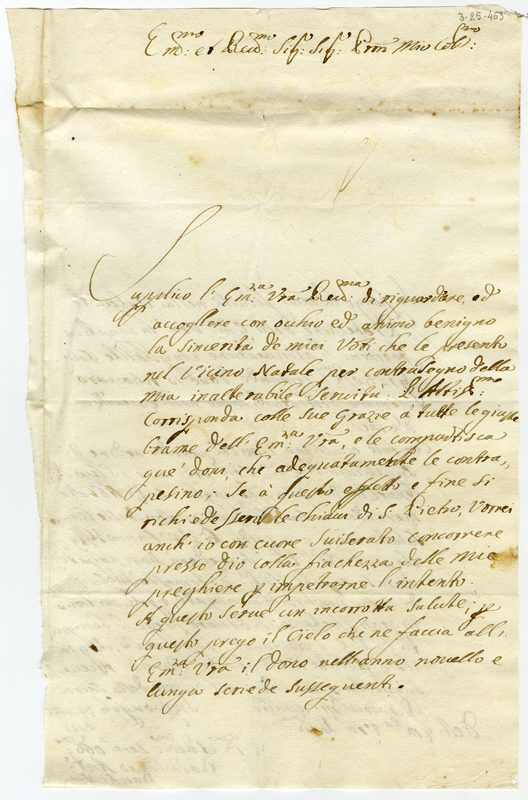 3-25-463
Em.mo: et Reu.mo: Sig.r Sig.r Pron Mio Col.mo:
Supplico l' Em.za Vrã Reu.ma di riguardare, ed
accogliere con occhio ed animo benigno
la Sincerità de miei Voti che le presento
nel Vicino Natale per contrasegno della
mia inalterabile Seruitù. L'Altis.mo:
Corrisponda colle sue Grazie à tutte le giuste
brame dell' Em.za Vrã, e le compartisca
que' doni, che adequatamente le contra,
pesino; Se à questo effetto e fine si
richiedessero le Chiaui di S. Pietro, Vorrei
anch' io con cuore suiserato concorrere
presso Dio colla fiachezza delle mie
preghiere p impetrarne l' intento.
A questo serue un incorrotta Salute; p
questo prego il Cielo che ne faccia all'
Em.za Vrã il dono nell'anno nouello e
lunga serie de susseguenti.